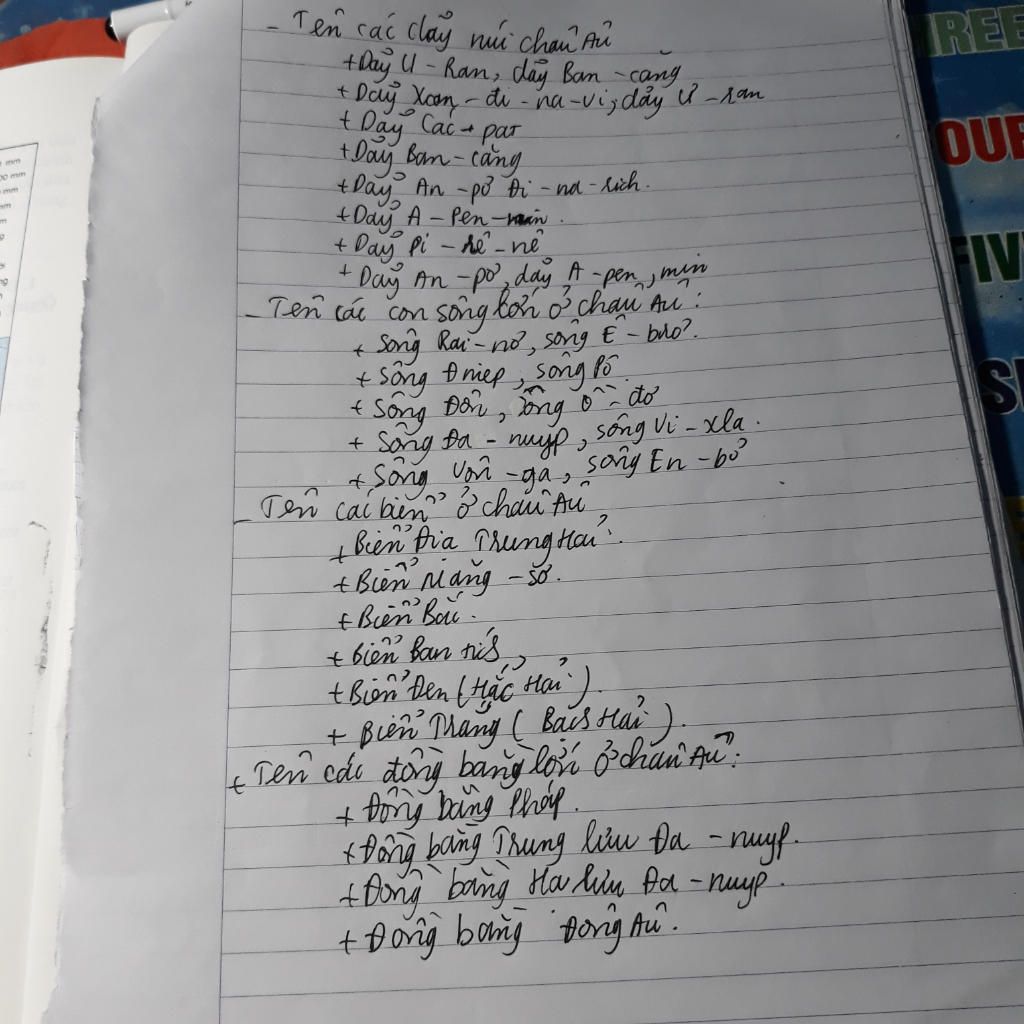 - Tên các dãy núi châu Âu
+ Dãy U - Ran, dãy Ban - căng
+ Dãy Xcan - đi - na - vi, dãy U - ran
+ Dãy Các - pat
+ Dãy Ban - căng
+ Dãy An - pơ Đi - na - rich.
+ Dãy A - Pen - nin.
+ Dãy Pi - rê - nê
+ Dãy An - pơ, dãy A - pen, min
- Tên các con sông lớn ở châu Âu:
+ Sông Rai - nơ, sông Ê - brơ.
+ Sông Đniep, sông Pô
+ Sông Đôn, sông Ô - đơ
+ Sông Đa - nuyp, sông Vi - xla.
+ Sông Vôn - ga, sông En - bơ
- Tên các biển ở châu Âu
+ Biển Địa Trung Hải.
+ Biển Măng - sơ.
+ Biển Bắc.
+ Biển Ban tích
+ Biển Đen (Hắc Hải).
+ Biển Trắng (Bạch Hải).
+ Tên các đồng bằng lớn ở châu Âu:
+ Đồng bằng Pháp.
+ Đồng bằng Trung lưu Đa - nuyp.
+ Đồng bằng Hạ lưu Đa - nuyp.
+ Đồng bằng Đông Âu.
REE
OUR
FIV
S
mm
mm
mm